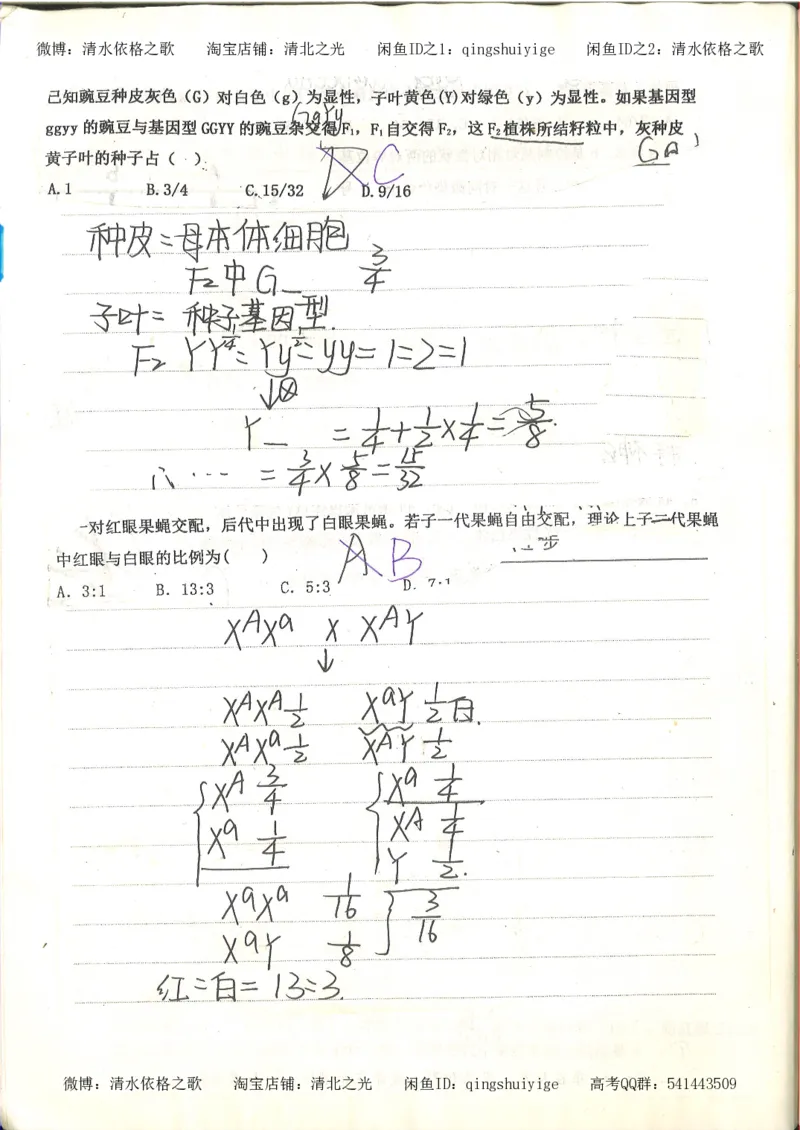 微博：清水依格之歌 淘宝店铺：清北之光 闲鱼ID之1：qingshuiyige 闲鱼ID之2：清水依格之歌
己知豌豆种皮灰色（G）对白色（g）为显性，子叶黄色(Y)对绿色（y）为显性。如果基因型
GgYy
ggyy 的豌豆与基因型 GGYY 的豌豆杂交得F₁，F₁自交得F₂，这F₂植株所结籽粒中，灰种皮
黄子叶的种子占（ ）
D C
A.1 B.3/4 C.15/32 D.9/16
种皮=母本体细胞
F₂中G_ 3/4
子叶=种子基因型.
F₂ YY:Yy:yy=1:2:1
↓⊗
Y_ =1/4+1/2×1/4=5/8.
∴… =3/4×5/8=15/32
一对红眼果蝇交配，后代中出现了白眼果蝇。若子一代果蝇自由交配，理论上子二代果蝇
中红眼与白眼的比例为( )
A B
A. 3:1 B. 13:3 C. 5:3 D. 7:1
XAXa × XAY
↓
XAXA 1/2 XaY 1/2白.
XAXa 1/2 XAY 1/2
XA 3/4 Xa 1/4
Xa 1/4 XA 1/4
Y 1/2.
XaXa 1/16
XaY 1/8 3/16
红:白=13:3.
微博：清水依格之歌 淘宝店铺：清北之光 闲鱼ID：qingshuiyige 高考QQ群：541443509